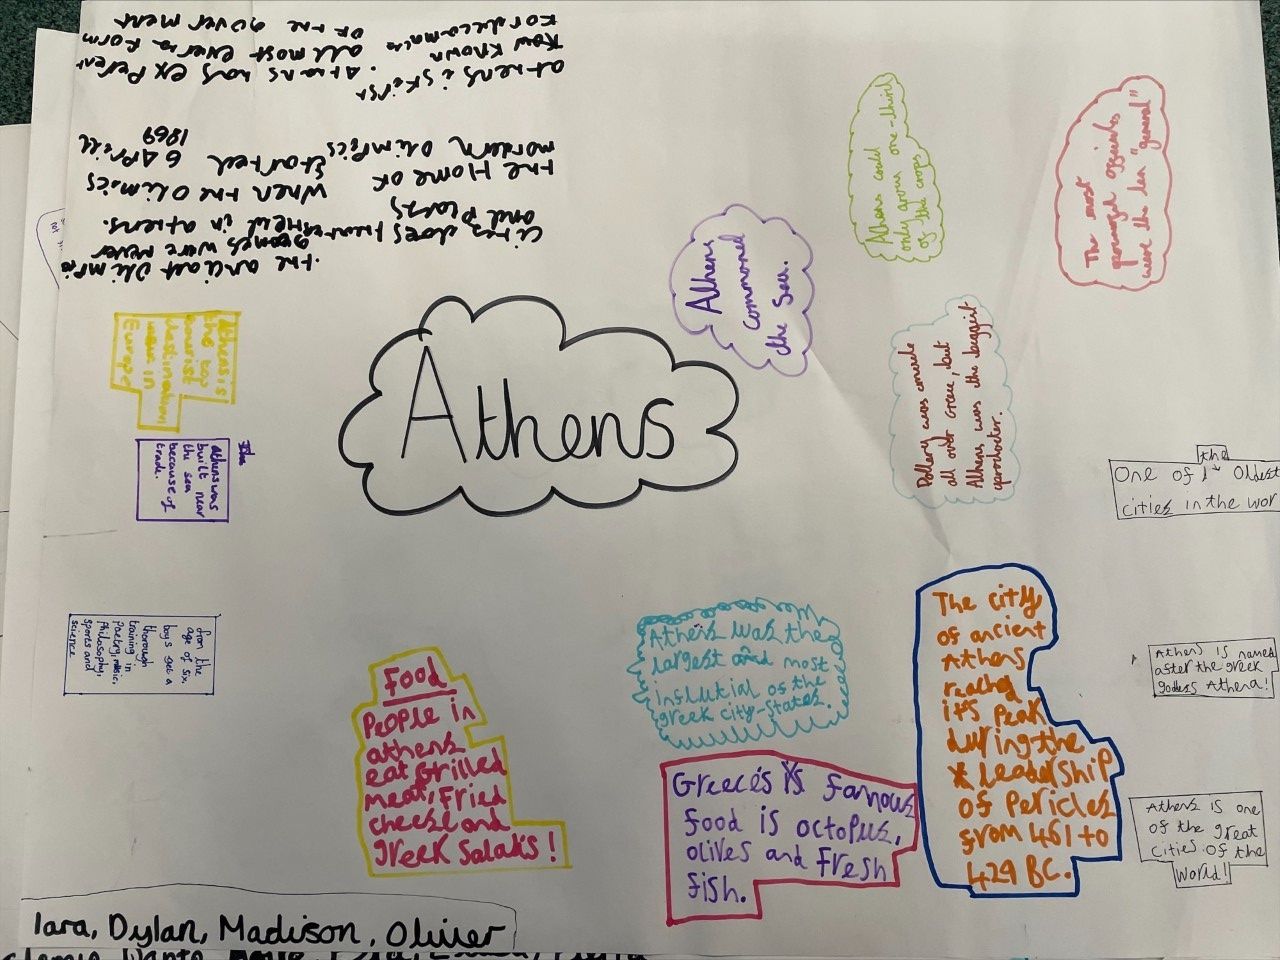 the anciat Olimpic
games were never
held in athens.
and plays
the Home of
mordern Olimpics
When the Olimpics
started 6 Aprill
1869
athens is first
known
allmost ever a form
of the goverment
Athens
Athens
commoned
the sea.
Athens could
only grow one-third
of the crops
The most
were the ten "general"
Pottery was
all over Greece, but
Athens was the biggest
Athens is
the top
tourist
destination
in
Europe
Athens was
built near
the sea
because of
trade.
from the
age of six
boys get a
thorough
training in
Poetry, music,
Philosophy,
sports and
science
Food
People in
athens
eat Grilled
meat, Fried
cheese and
greek Salads!
Athens was the
largest and most
influtial of the
greek city-states.
Greece's is famous
food is octopus,
olives and fresh
fish.
The city
of ancient
Athens
reached
it's peak
during the
leadership
of Pericles
from 461 to
429 BC.
the
One of Oldest
cities in the wor
Athens is named
after the greek
godess Athena!
Athens is one
of the great
cities of the
world!
Iara, Dylan, Madison, Olivier